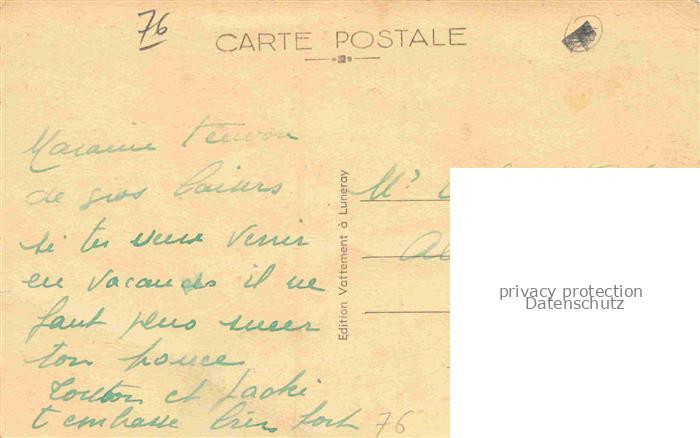 76
CARTE POSTALE
Maraine
de gros baisers
si tu veux venir
en vacances il ne
faut plus sucer
ton pouce
Tonton et Jacki
t embrasse bien fort
76
Edition Vattement à Luneray
Mr
privacy protection
Datenschutz